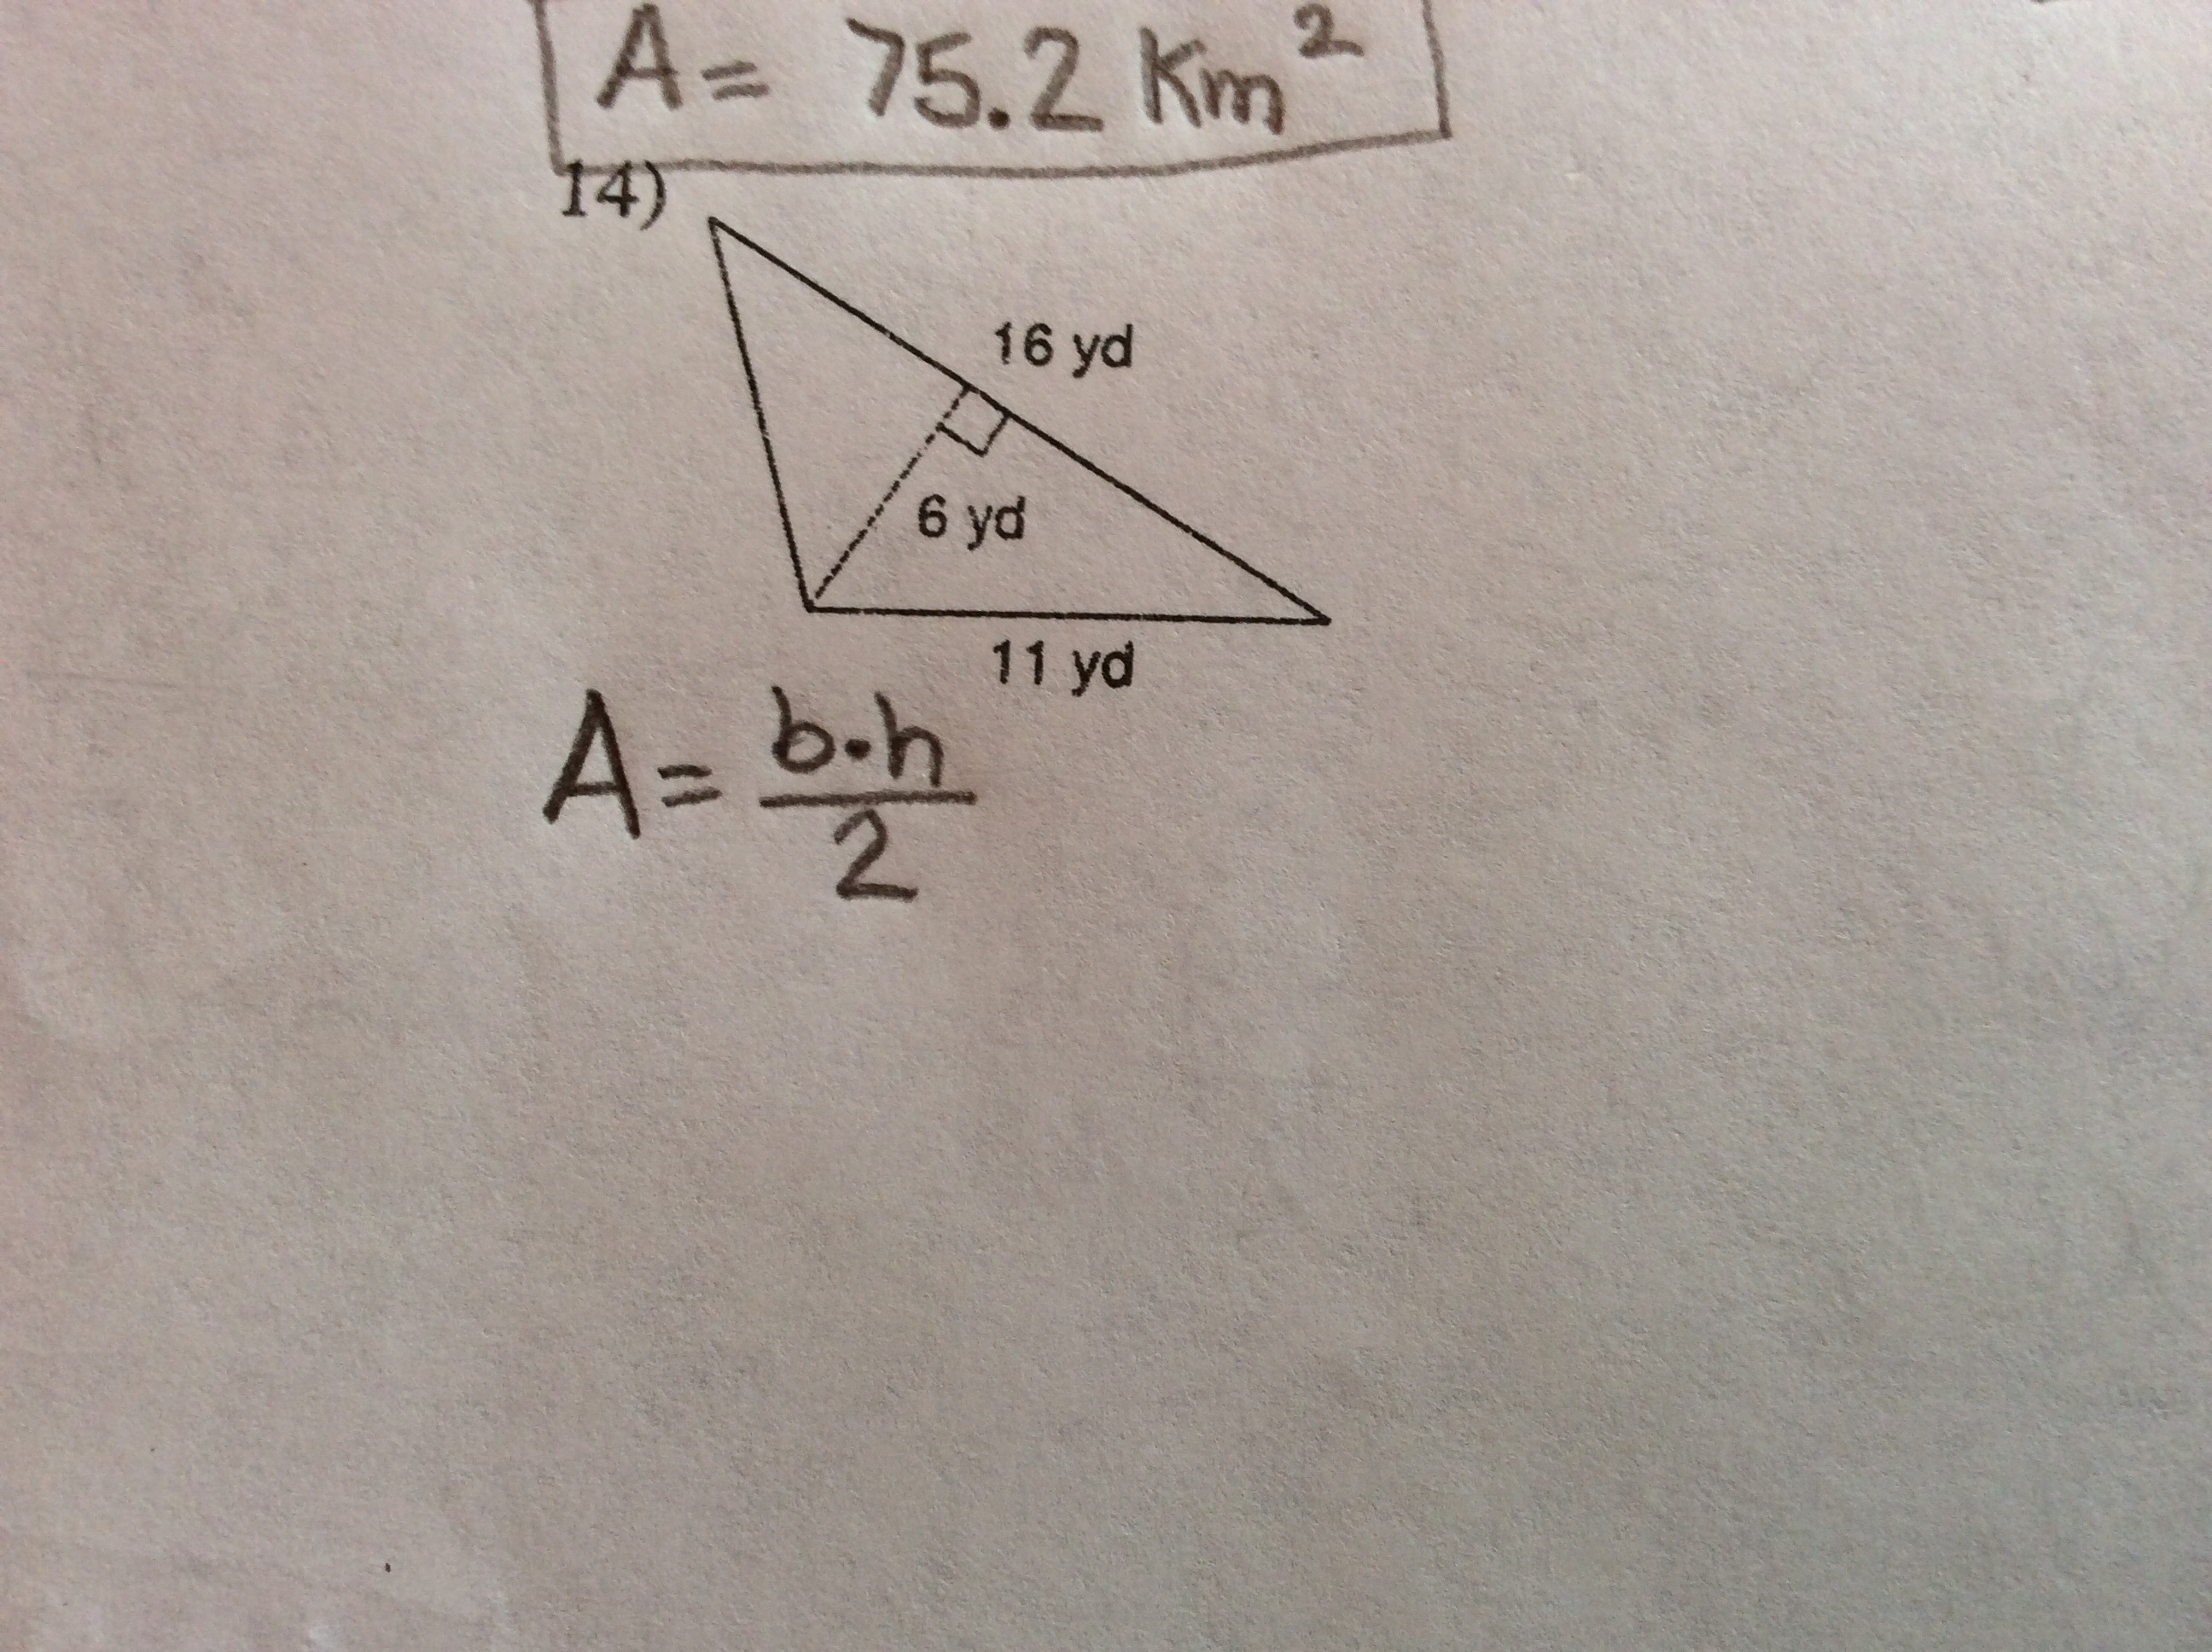 A = 75.2 Km²
14)
16 yd
6 yd
11 yd
A = b·h
2